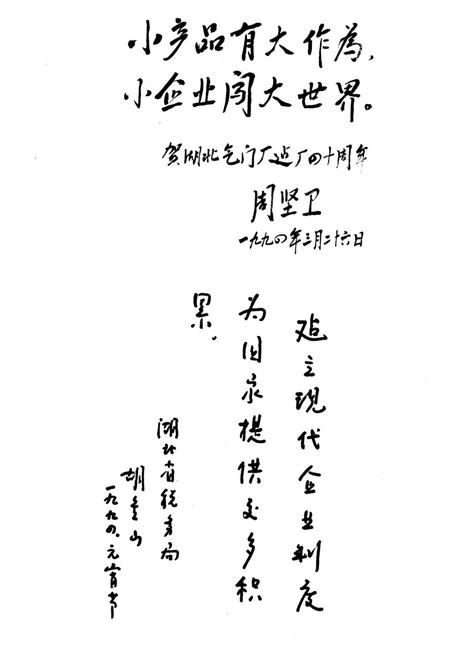 小产品有大作為,
小企业闯大世界。
贺湖北气门厂建厂四十周年
周坚卫
一九九四年三月二十六日
建立现代企业制度
为国家提供更多积
累.
湖北省税务局
一九九四.元宵节